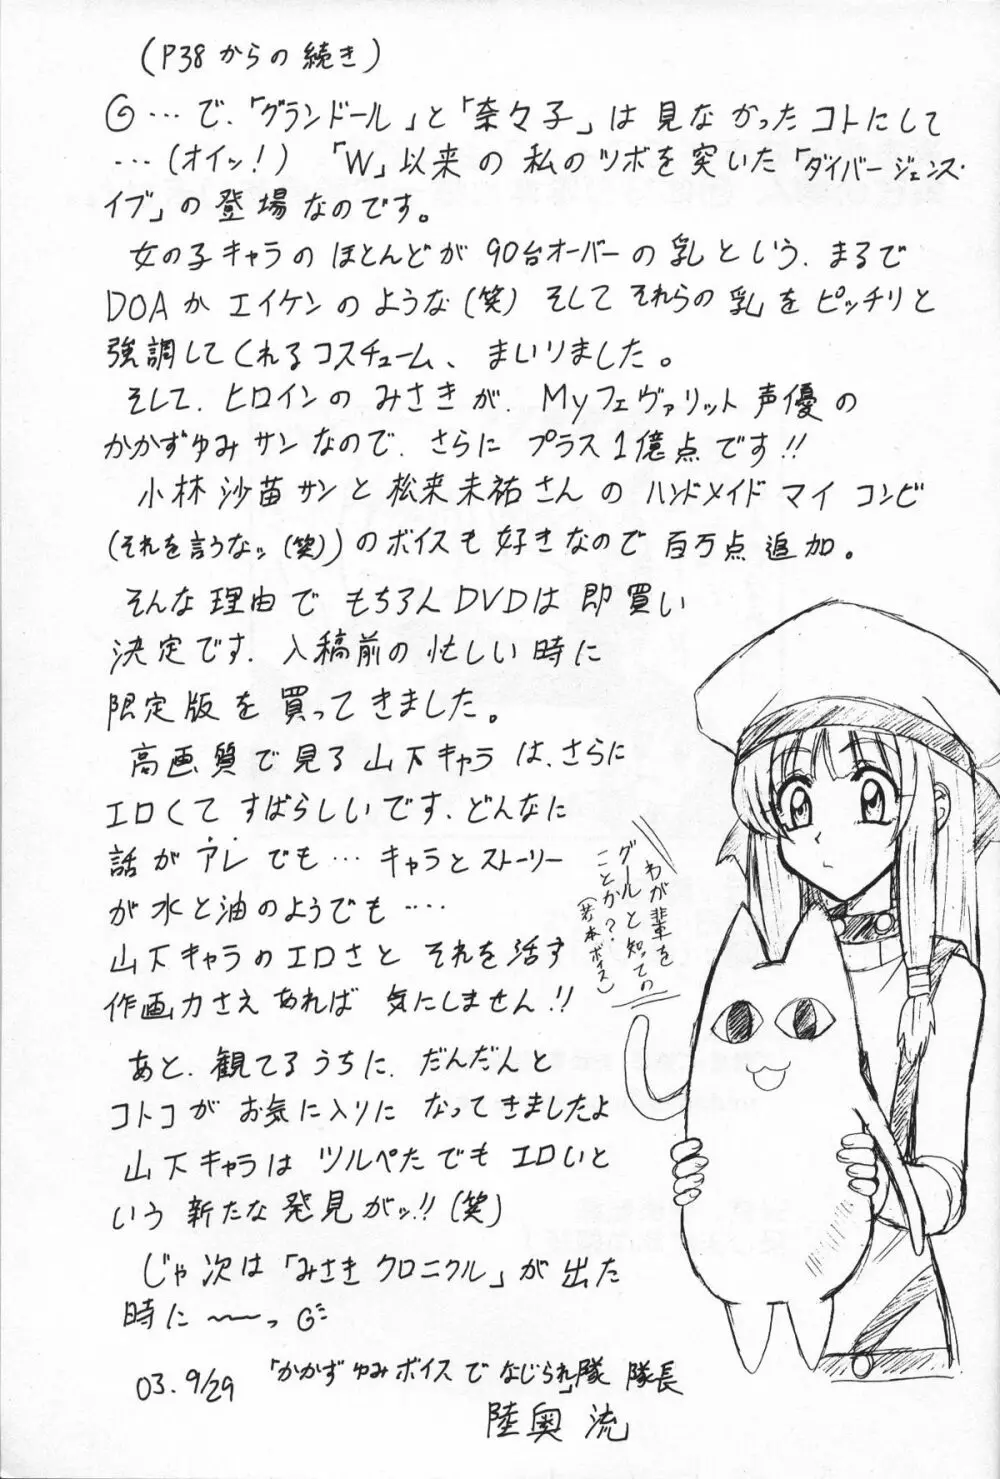 (P38からの続き)
…で、「グランドール」と「奈々子」は見なかったコトにして
…(オイッ!) 「W」以来の私のツボを突いた「ダイバージェンス・
イブ」の登場なのです。
女の子キャラのほとんどが90台オーバーの乳という、まるで
DOAかエイケンのような(笑)そしてそれらの乳をピッチリと
強調してくれるコスチューム、まいりました。
そして、ヒロインのみさきが、Myフェヴァリット声優の
かかずゆみサンなので、さらにプラス1億点です!!
小林沙苗サンと松来未祐さんのハンドメイドマイコンビ
(それを言うなッ(笑))のボイスも好きなので百万点追加。
そんな理由でもちろんDVDは即買い
決定です、入稿前の忙しい時に
限定版を買ってきました。
高画質で見る山下キャラは、さらに
エロくてすばらしいです、どんなに
話がアレでも…キャラとストーリー
が水と油のようでも……
山下キャラのエロさとそれを活す
作画力さえあれば気にしません!!
あと、観てるうちに、だんだんと
コトコがお気に入りになってきましたよ
山下キャラはツルペたでもエロいと
いう新たな発見がッ!!(笑)
じゃ次は「みさきクロニクル」が出た
時に〜〜っ
03.9/29 「かかずゆみボイスでなじられ」隊 隊長
陸奥流
わが輩を
グールと知っての
ことか?
(若本ボイス)